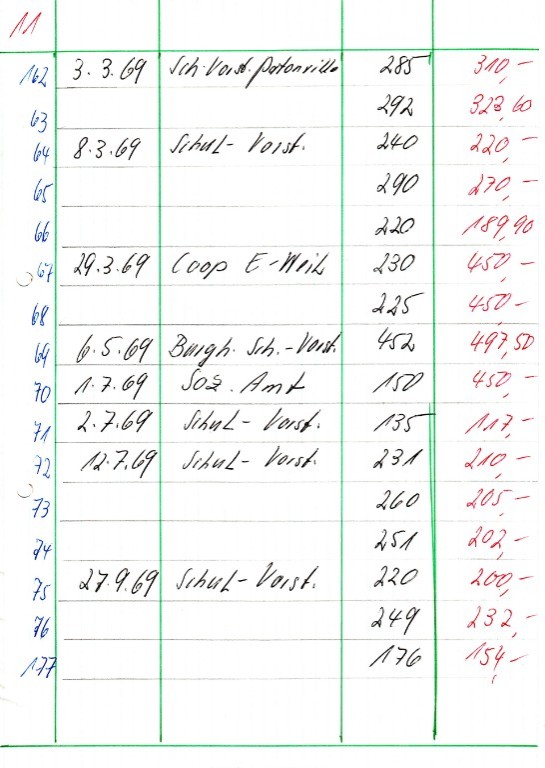 11
162 3.3.69 Sch.-Vorst. Patonville 285 310,-
63 292 323,60
64 8.3.69 Schul-Vorst. 240 220,-
65 290 270,-
66 220 189,90
67 29.3.69 Coop E-Weil 230 450,-
68 225 450,-
69 6.5.69 Burgh. Sch.-Vorst. 452 497,50
70 1.7.69 Soz. Amt 150 450,-
71 2.7.69 Schul-Vorst. 135 117,-
72 12.7.69 Schul-Vorst. 231 210,-
73 260 205,-
74 251 202,-
75 27.9.69 Schul-Vorst. 220 200,-
76 249 232,-
177 176 154,-